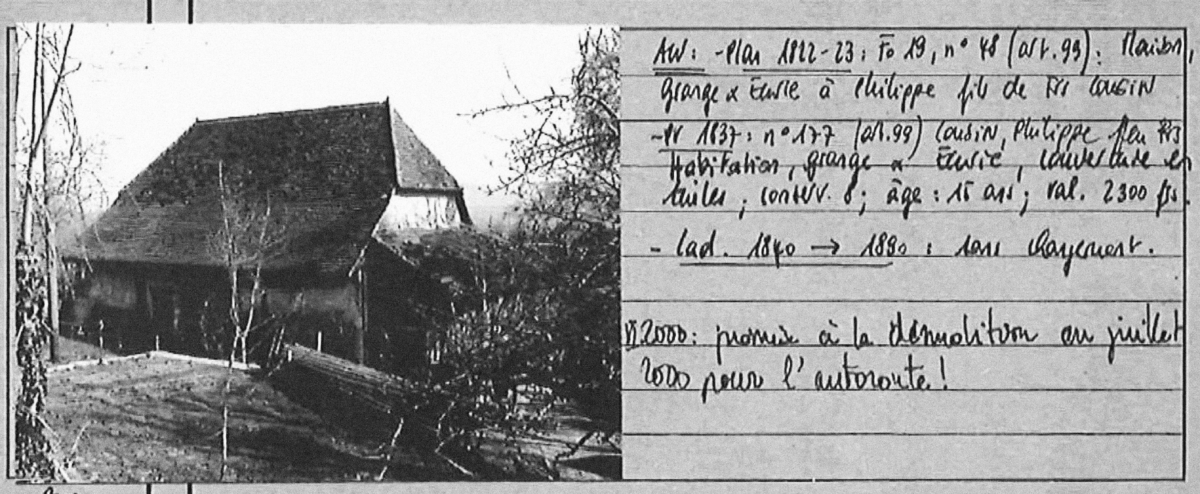 AW: - Plan 1822-23: Fo 19, n° 48 (art. 99): Maison,
grange & Écurie à Philippe fils de Frs Cousin
- PV 1837: n° 177 (art. 99) Cousin, Philippe feu Frs
Habitation, grange & Écurie, couverture en
tuiles; conserv. 8; âge: 15 ans; val. 2300 fs.
- Cad. 1840 → 1890: sans changement.
VI 2000: promise à la démolition en juillet
2000 pour l'autoroute!